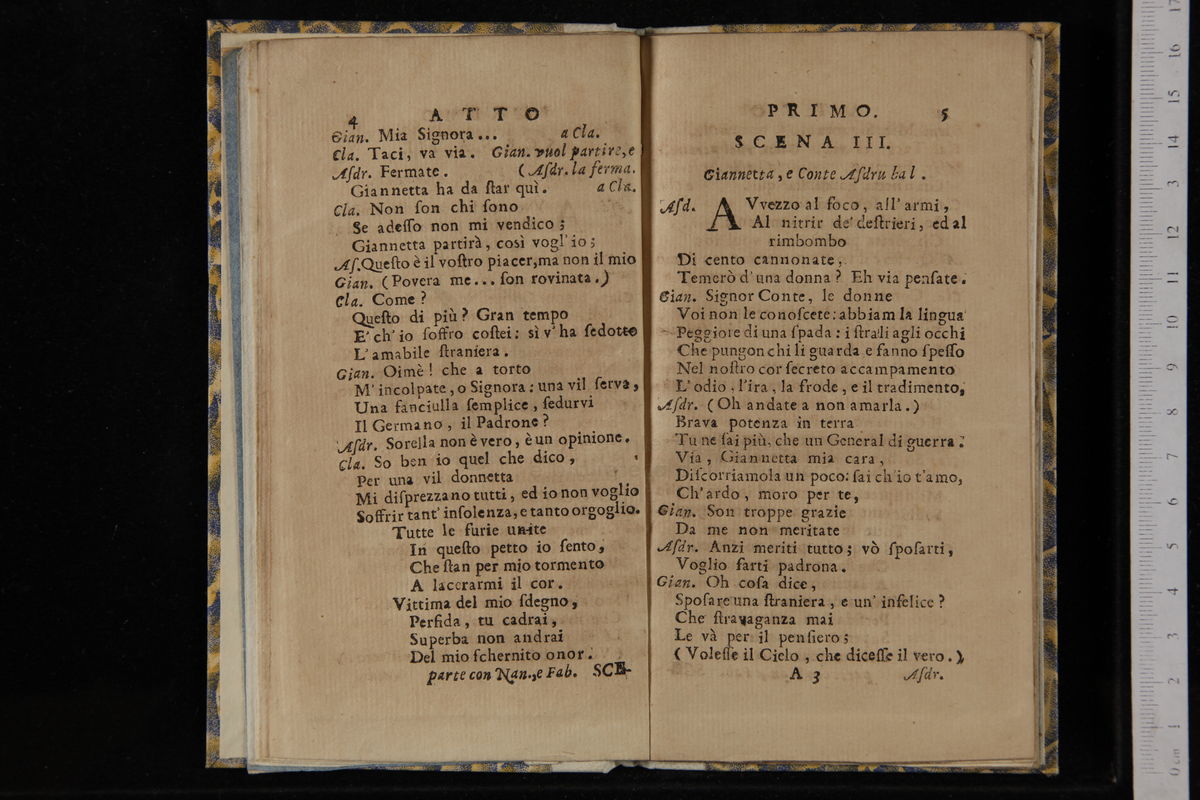 4 ATTO
Gian. Mia Signora... a Cla.
Cla. Taci, va via. Gian. vuol partire, e
Aſdr. Fermate. (Aſdr. la ferma.
Giannetta ha da ſtar quì. a Cla.
Cla. Non ſon chi ſono
Se adeſſo non mi vendico;
Giannetta partirà, così vogl'io;
Aſ. Queſto è il voſtro piacer, ma non il mio
Gian. (Povera me... ſon rovinata.)
Cla. Come?
Queſto di più? Gran tempo
E' ch'io ſoffro coſtei: sì v'ha ſedotto
L'amabile ſtraniera.
Gian. Oimè! che a torto
M'incolpate, o Signora: una vil ſerva,
Una fanciulla ſemplice, ſedurvi
Il Germano, il Padrone?
Aſdr. Sorella non è vero, è un opinione.
Cla. So ben io quel che dico,
Per una vil donnetta
Mi diſprezzano tutti, ed io non voglio
Soffrir tant' inſolenza, e tanto orgoglio.
Tutte le furie unite
In queſto petto io ſento,
Che ſtan per mio tormento
A lacerarmi il cor.
Vittima del mio ſdegno,
Perfida, tu cadrai,
Superba non andrai
Del mio ſchernito onor.
parte con Nan., e Fab. SCE-
PRIMO. 5
SCENA III.
Giannetta, e Conte Aſdrubal.
Aſd. AVvezzo al foco, all' armi,
Al nitrir de' deſtrieri, ed al
rimbombo
Di cento cannonate,
Temerò d'una donna? Eh via penſate.
Gian. Signor Conte, le donne
Voi non le conoſcete: abbiam la lingua
Peggiore di una ſpada: i ſtrali agli occhi
Che pungon chi li guarda e fanno ſpeſſo
Nel noſtro cor ſecreto accampamento
L'odio, l'ira, la frode, e il tradimento,
Aſdr. (Oh andate a non amarla.)
Brava potenza in terra
Tu ne ſai più, che un General di guerra.
Via, Giannetta mia cara,
Diſcorriamola un poco: ſai ch'io t'amo,
Ch'ardo, moro per te,
Gian. Son troppe grazie
Da me non meritate
Aſdr. Anzi meriti tutto; vò ſpoſarti,
Voglio farti padrona.
Gian. Oh coſa dice,
Spoſare una ſtraniera, e un' infelice?
Che ſtravaganza mai
Le và per il penſiero;
(Voleſſe il Cielo, che diceſſe il vero.)
A 3 Aſdr.
0 cm 1 2 3 4 5 6 7 8 9 10 11 12 13 14 15 16 17